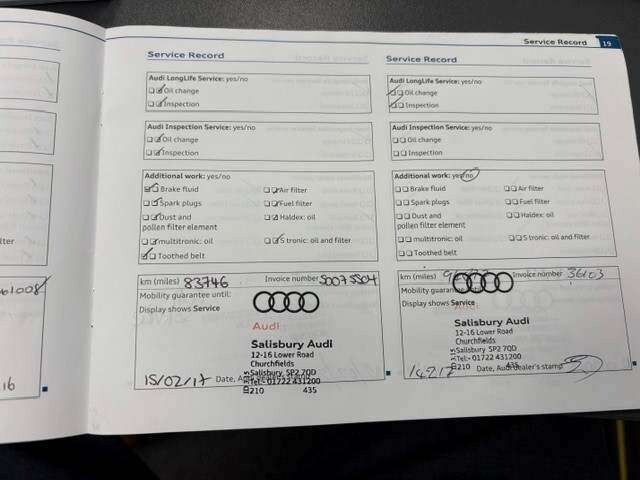 Service Record 19
Service Record
Audi LongLife Service: yes/no
Oil change
Inspection
Audi Inspection Service: yes/no
Oil change
Inspection
Additional work: yes/no
Brake fluid Air filter
Spark plugs Fuel filter
Dust and Haldex: oil
pollen filter element
multitronic: oil S tronic: oil and filter
Toothed belt
km (miles) 83746 Invoice number
Mobility guarantee until:
Display shows Service
Audi
Salisbury Audi
12-16 Lower Road
Churchfields
Salisbury, SP2 7QD
Tel:- 01722 431200
15/02/17 Date, Audi
210 435
Service Record
Audi LongLife Service: yes/no
Oil change
Inspection
Audi Inspection Service: yes/no
Oil change
Inspection
Additional work: yes/no
Brake fluid Air filter
Spark plugs Fuel filter
Dust and Haldex: oil
pollen filter element
multitronic: oil S tronic: oil and filter
Toothed belt
km (miles) Invoice number 36103
Mobility guarantee
Display shows Service
Audi
Salisbury Audi
12-16 Lower Road
Churchfields
Salisbury SP2 7QD
Tel:- 01722 431200
210 Date, Audi dealer's stamp
lter
61008
16